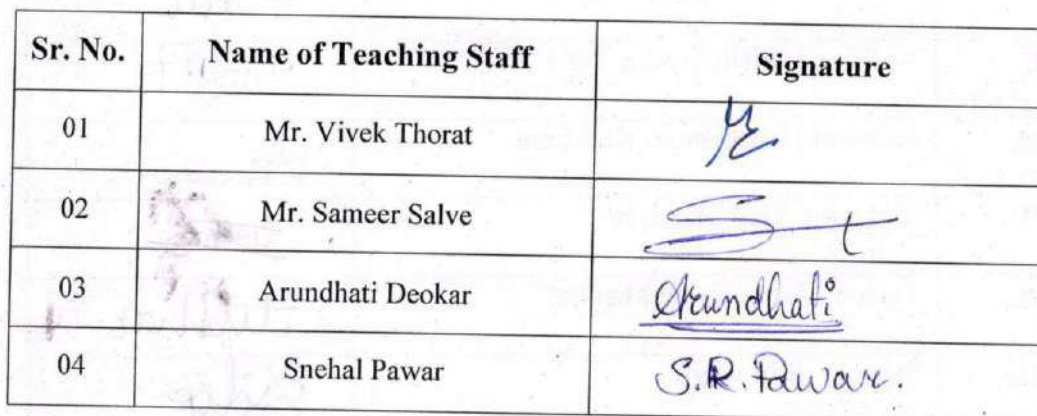 Sr. No. Name of Teaching Staff Signature
01 Mr. Vivek Thorat
02 Mr. Sameer Salve
03 Arundhati Deokar Arundhati
04 Snehal Pawar S.R. Pawar.